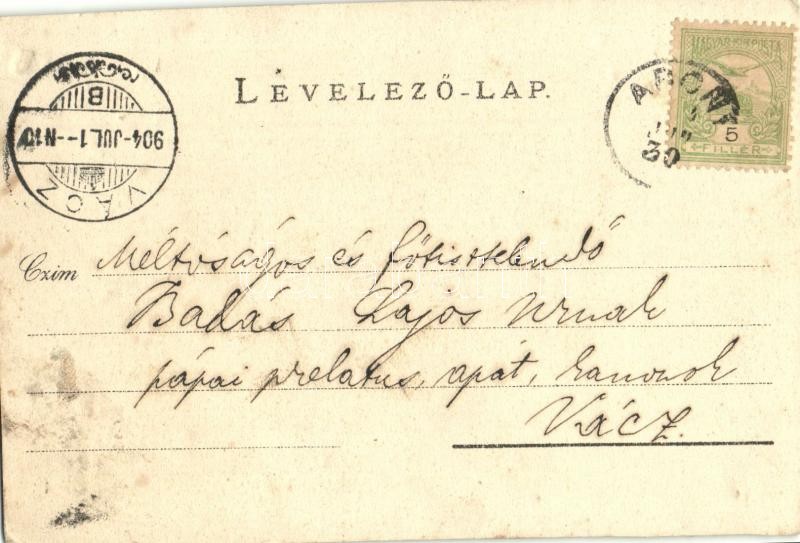 LEVELEZŐ-LAP.
MAGYAR KIR. POSTA
5
FILLÉR
ADONY
30
B
904-JUL.1--N10
VÁCZ
Czim Méltóságos és főtisztelendő
Balás Lajos Urnak
pápai prelatus, apát, kanonok
Vácz.